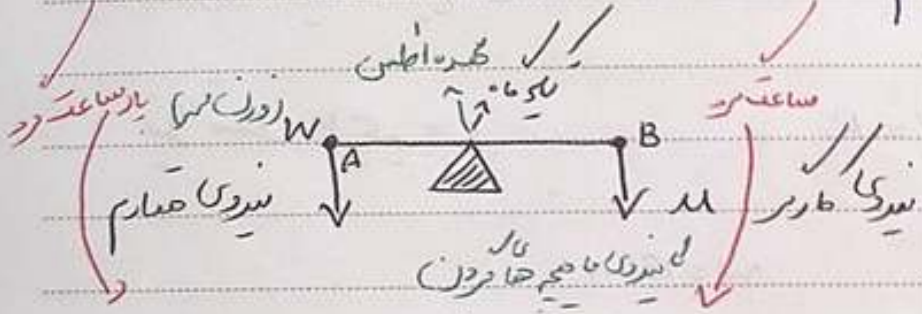 مهره اطلس
تکیه گاه
پاد ساعت گرد
(وزن سر) W
A
B
ساعت گرد
نیروی مقاوم
M
نیروی کارگر
نیروی ماهیچه های گردن